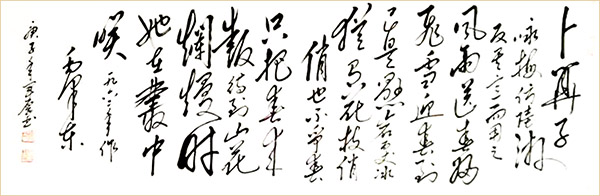 卜算子
咏梅读陆游
反其意而用之
风雨送春归
飛雪迎春到
已是悬崖百丈冰
犹有花枝俏
俏也不争春
只把春来
报待到山花
爛漫时
她在叢中
笑 一九六二年作
毛泽东
庚子年